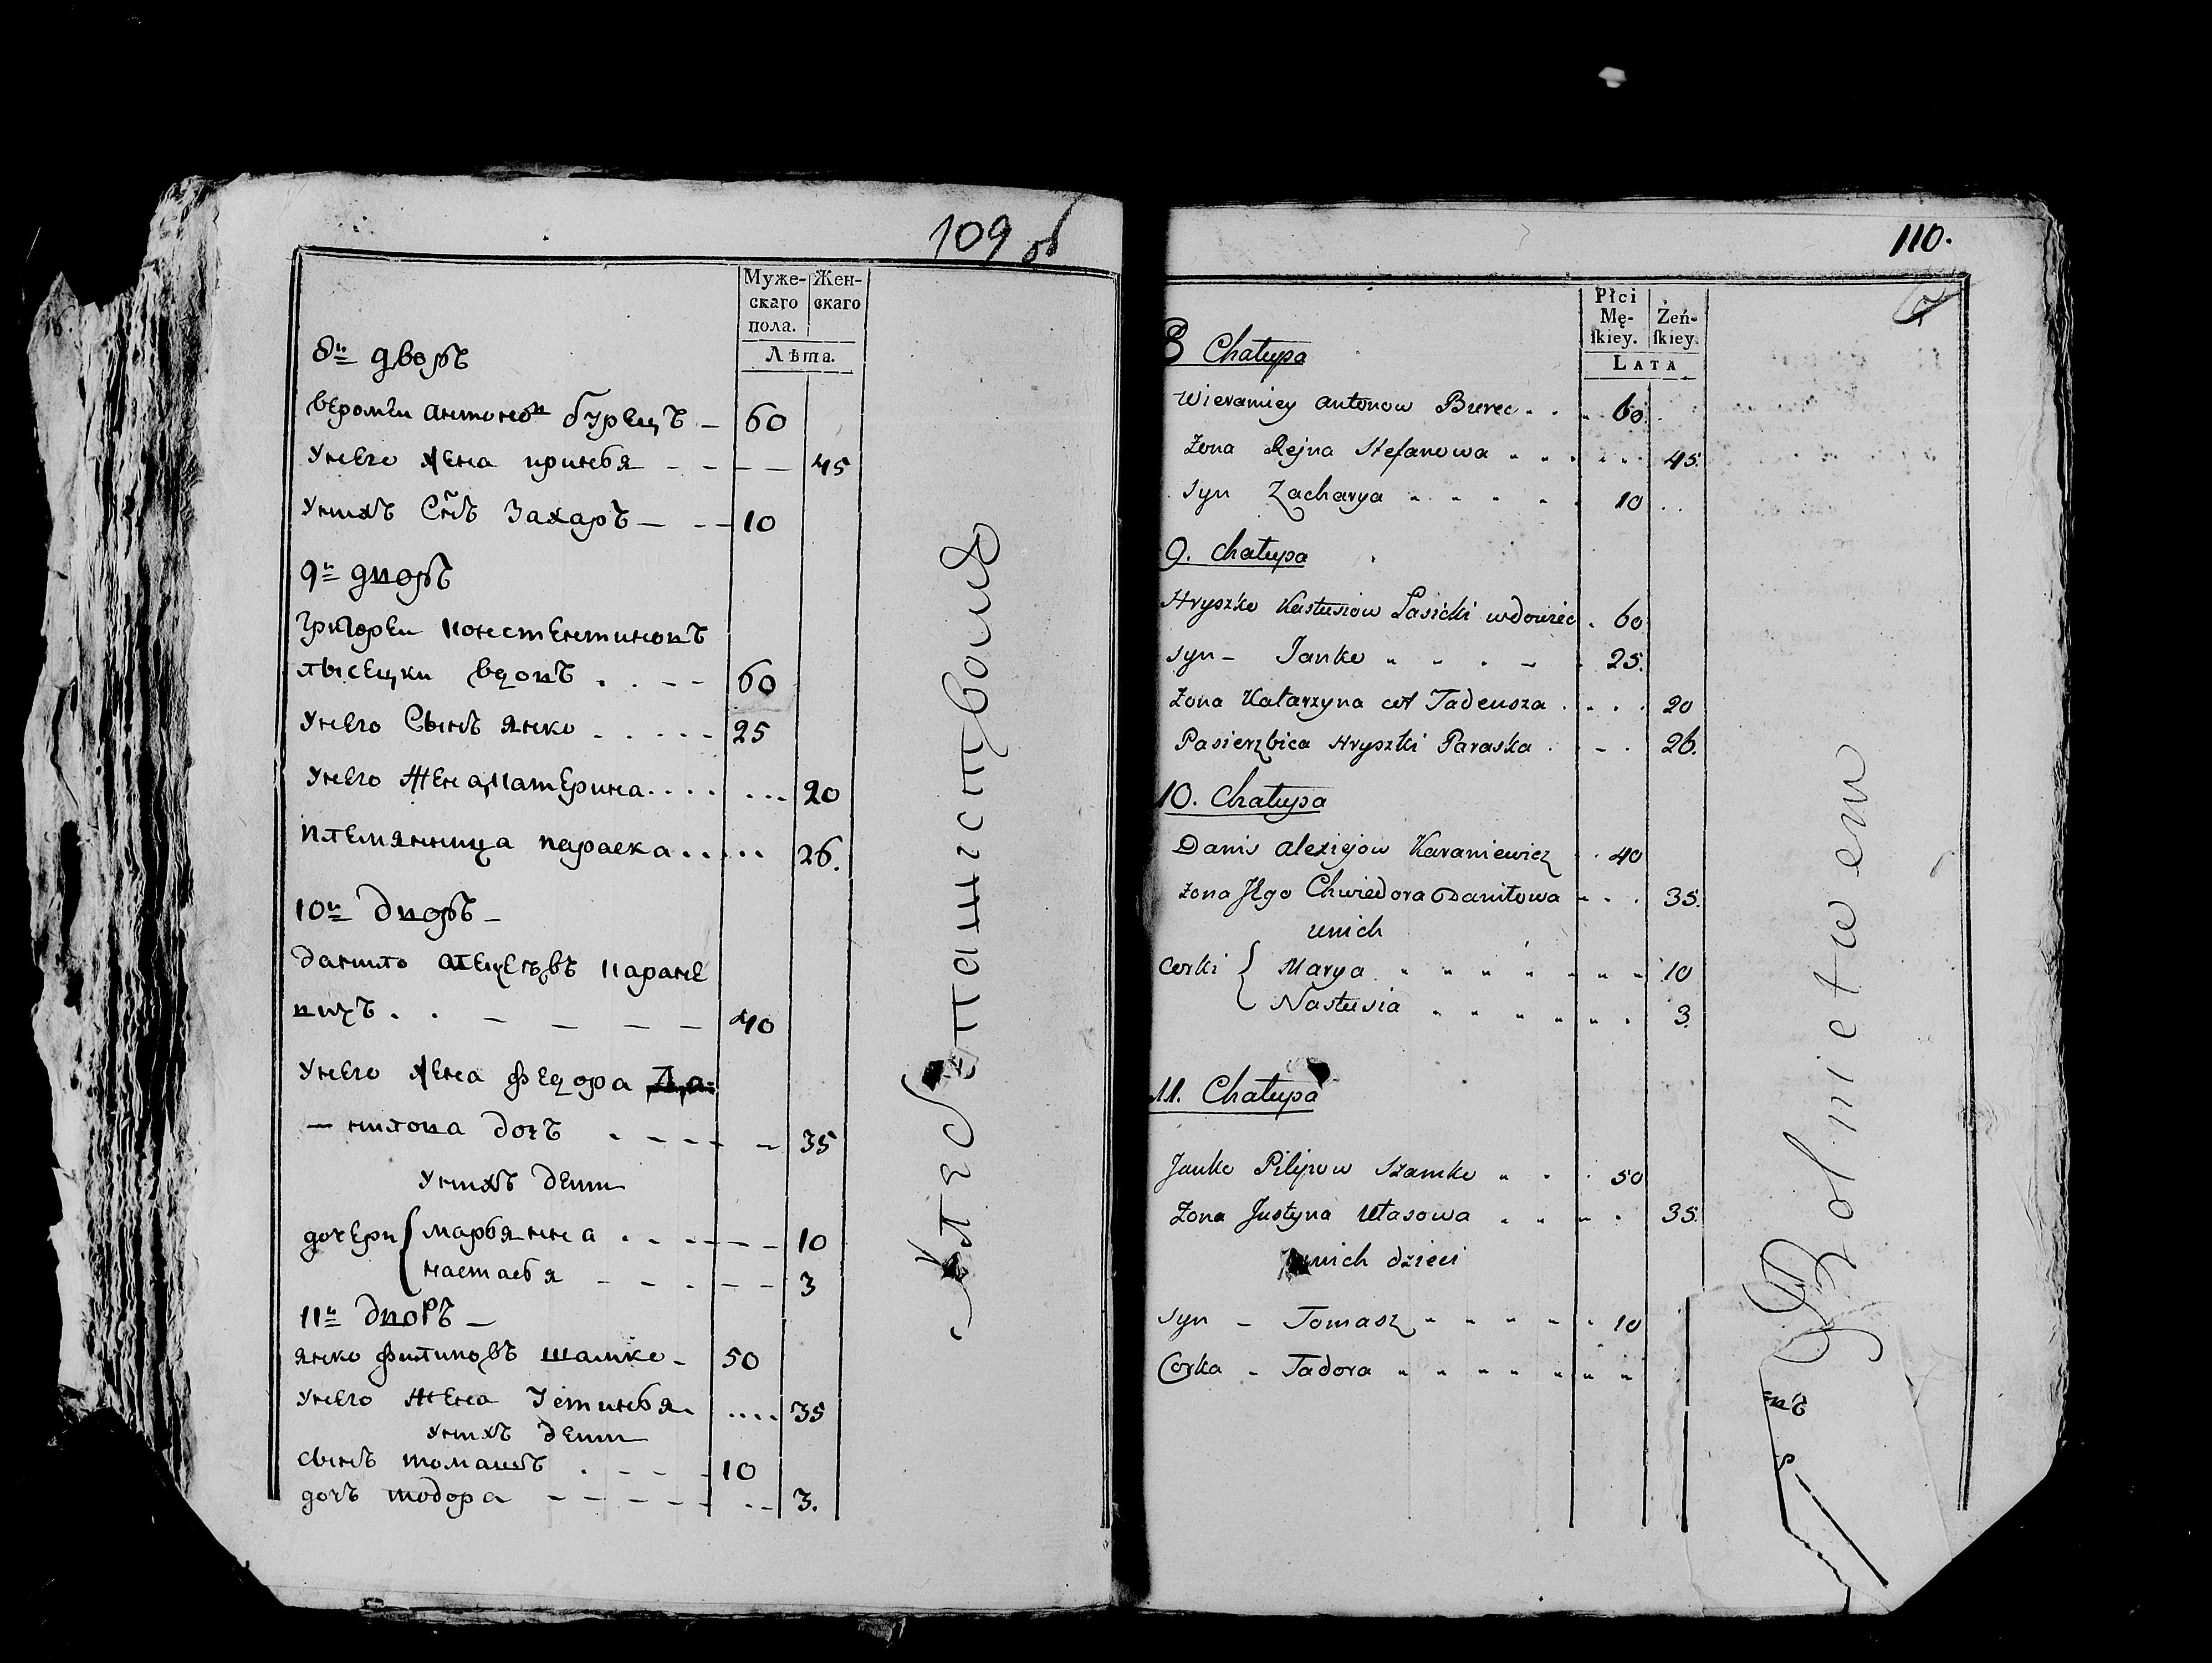 109 об
Муже-
скаго
пола.
Жен-
скаго
Лѣта.
8й дворъ
веромѣи антонов бурецъ 60
У него жена иринья 45
У нихъ Снъ Захаръ 10
9й дворъ
Григореи констентиновъ
лысецки вдовъ 60
У него Сынъ янко 25
У него жена катерина 20
племянница параска 26.
10й дворъ
данило алецеевъ каране
вичъ 40
У него жена федора Да-
нилова дочъ 35
У нихъ дети
дочери марьянна 10
настасья 3
11й дворъ
янко филиповъ шамко 50
У него жена Устинья 35
У нихъ дети
сынъ томашъ 10
дочъ тодора 3.
110.
Płci
Mę-
skiey.
Żeń-
skiey.
LATA
8 Chałupa
Wieramiey Antonow Burec 60
Żona Rejna Stefanowa 45.
Syn Zacharya 10
9. Chałupa
Hryszko Kastusiow Łasicki wdowiec 60
Syn Janko 25.
Żona Katarzyna cor Tadeusza 20
Pasierzbica Hryszki Paraska 26.
10. Chałupa
Danis Alexiejow Karaniewicz 40
Żona Jego Chwiedora Daniłowa 35.
u nich
Corki Marya 10
Nastusia 3.
11. Chałupa
Janko Pilipow Szamko 50
Żona Justyna Ułasowa 35.
u nich dzieci
Syn Tomasz 10
Corka Tadora